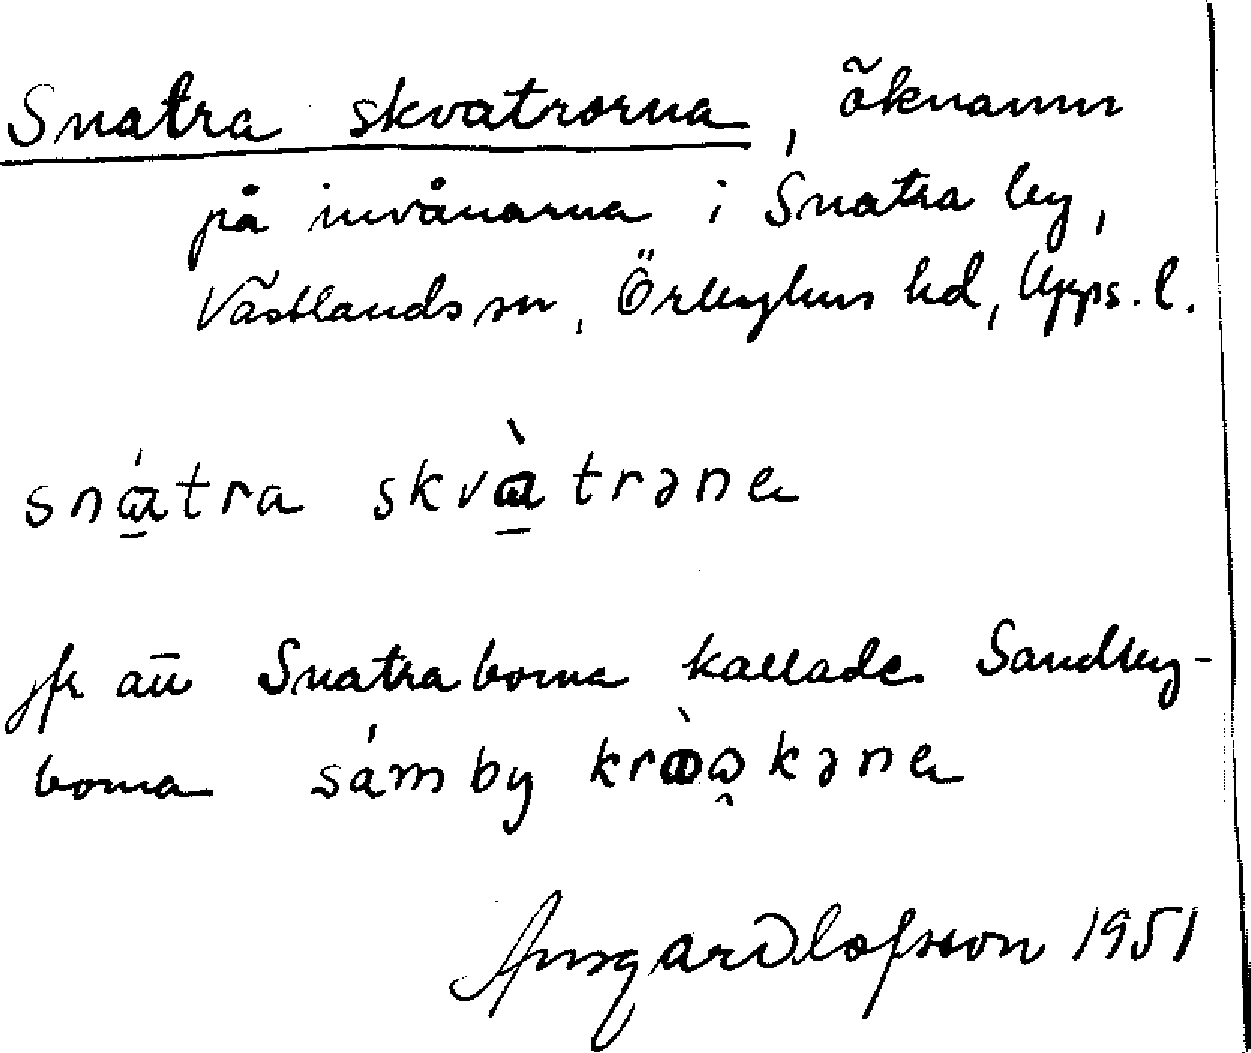 Snatra skvatrorna, öknamn
på invånarna i Snatra by,
Västlands sn, Örbyhus hd, Upps. l.
snátra skvàtrəna
jfr att Snatraborna kallade Sandby-
borna sámby kəna
Ansgar Olofsson 1951